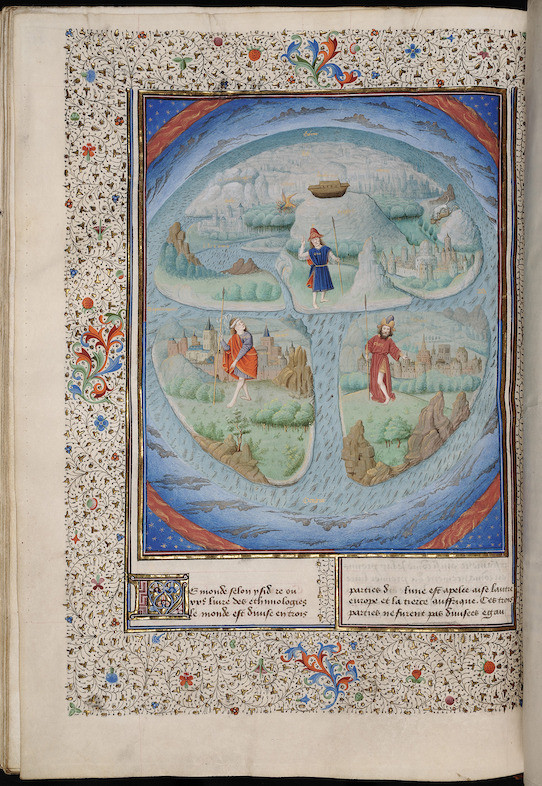 monde selon ysidore ou
livre des ethimologies
le monde est divise en trois
parties lune est apelee aise lautre
europe et la tierce auffrique. Ces trois
parties ne furent pas divisees egau